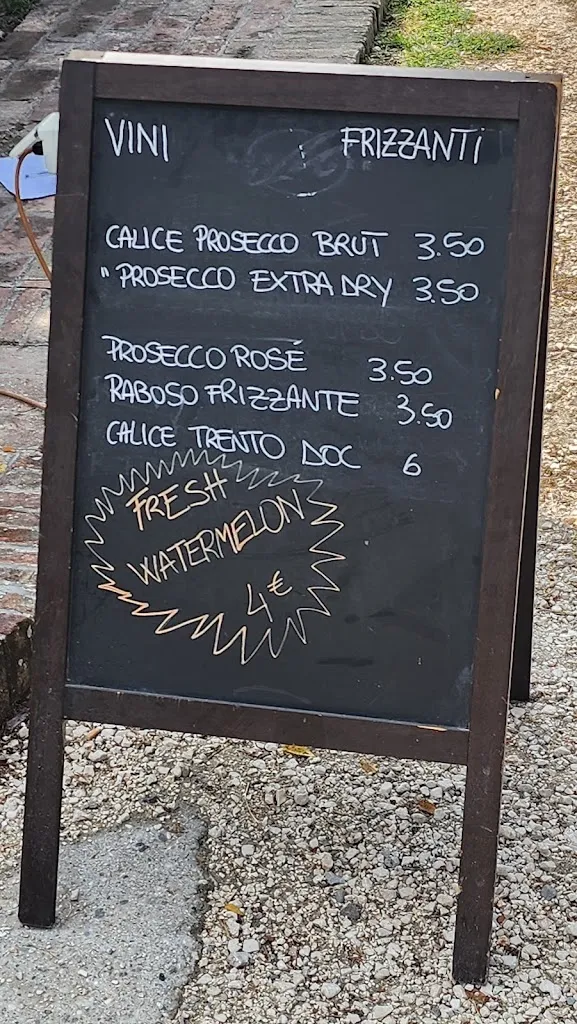 VINI FRIZZANTI
CALICE PROSECCO BRUT 3.50
" PROSECCO EXTRA DRY 3.50
PROSECCO ROSÉ 3.50
RABOSO FRIZZANTE 3.50
CALICE TRENTO DOC 6
FRESH
WATERMELON
4€